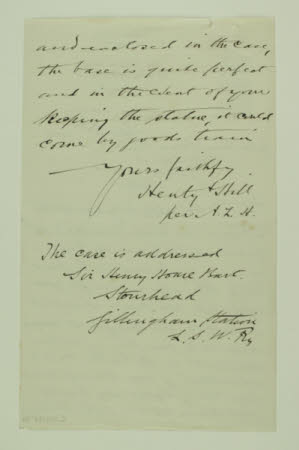 and enclosed in the case,
the base is quite perfect
and in the event of your
keeping the statue, it could
come by goods train
Yours faithfy
Henty &
per A L H.
The case is addressed
Sir Henry Hoare Bart.
Stourhead
Gillingham Station
L. S. W. Ry